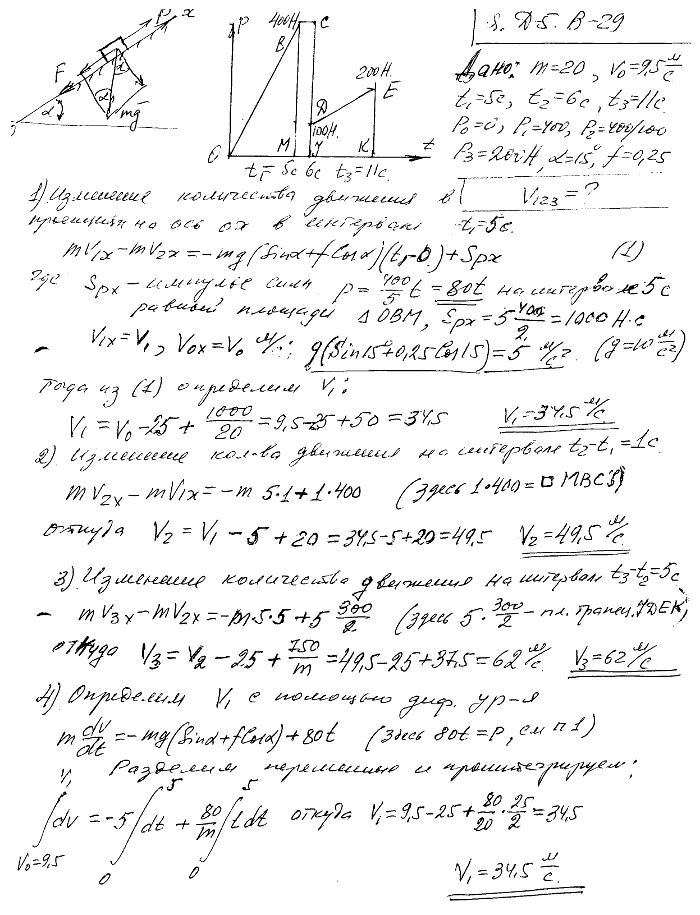 S. Д-5. В-29
Дано: m=20, V₀=9,5 м/с
t₁=5c, t₂=6c, t₃=11c.
P₀=0, P₁=400, P₂=400/100
P₃=200Н, α=15°, f=0,25
V₁₂₃=?
P x
F α α
α mg̅
P 400Н C
B
200Н.
D E
100Н.
O M У K t
t₁=5c 6c t₃=11c.
1) Изменение количества движения в
проекции на ось ox в интервале t₁=5c.
mV₁ₓ-mV₂ₓ=-mg(Sinα+fCosα)(t₁-0)+Sₚₓ (1)
где Sₚₓ-импульс силы P=400/5 t=80t на интервале 5c
равный площади Δ OBM, Sₚₓ=5 400/2=1000 Н·c
- V₁ₓ=V₁, V₀ₓ=V₀ м/с; g(Sin15°+0,25Cos15)=5 м/с². (g=10 м/с²)
тогда из (1) определим V₁:
V₁=V₀-25+1000/20=9,5-25+50=34,5 V₁=34,5 м/с
2) Изменение кол-ва движения на интервале t₂-t₁=1c.
mV₂ₓ-mV₁ₓ=-m 5·1+1·400 (здесь 1·400=□ MBCУ)
откуда V₂=V₁-5+20=34,5-5+20=49,5 V₂=49,5 м/с
3) Изменение количества движения на интервале t₃-t₂=5c
- mV₃ₓ-mV₂ₓ=-m·5·5+5 300/2 (здесь 5·300/2-пл. трапец. УDEK)
откуда V₃=V₂-25+750/m=49,5-25+37,5=62 м/с. V₃=62 м/с
4) Определим V₁ с помощью диф. ур-я
m dv/dt=-mg(Sinα+fCosα)+80t (здесь 80t=P, см п 1)
Разделим переменные и проинтегрируем:
V₁ 5 5
∫dv=-5∫dt+80/m∫tdt откуда V₁=9,5-25+80/20·25/2=34,5
V₀=9,5 0 0
V₁=34,5 м/с.